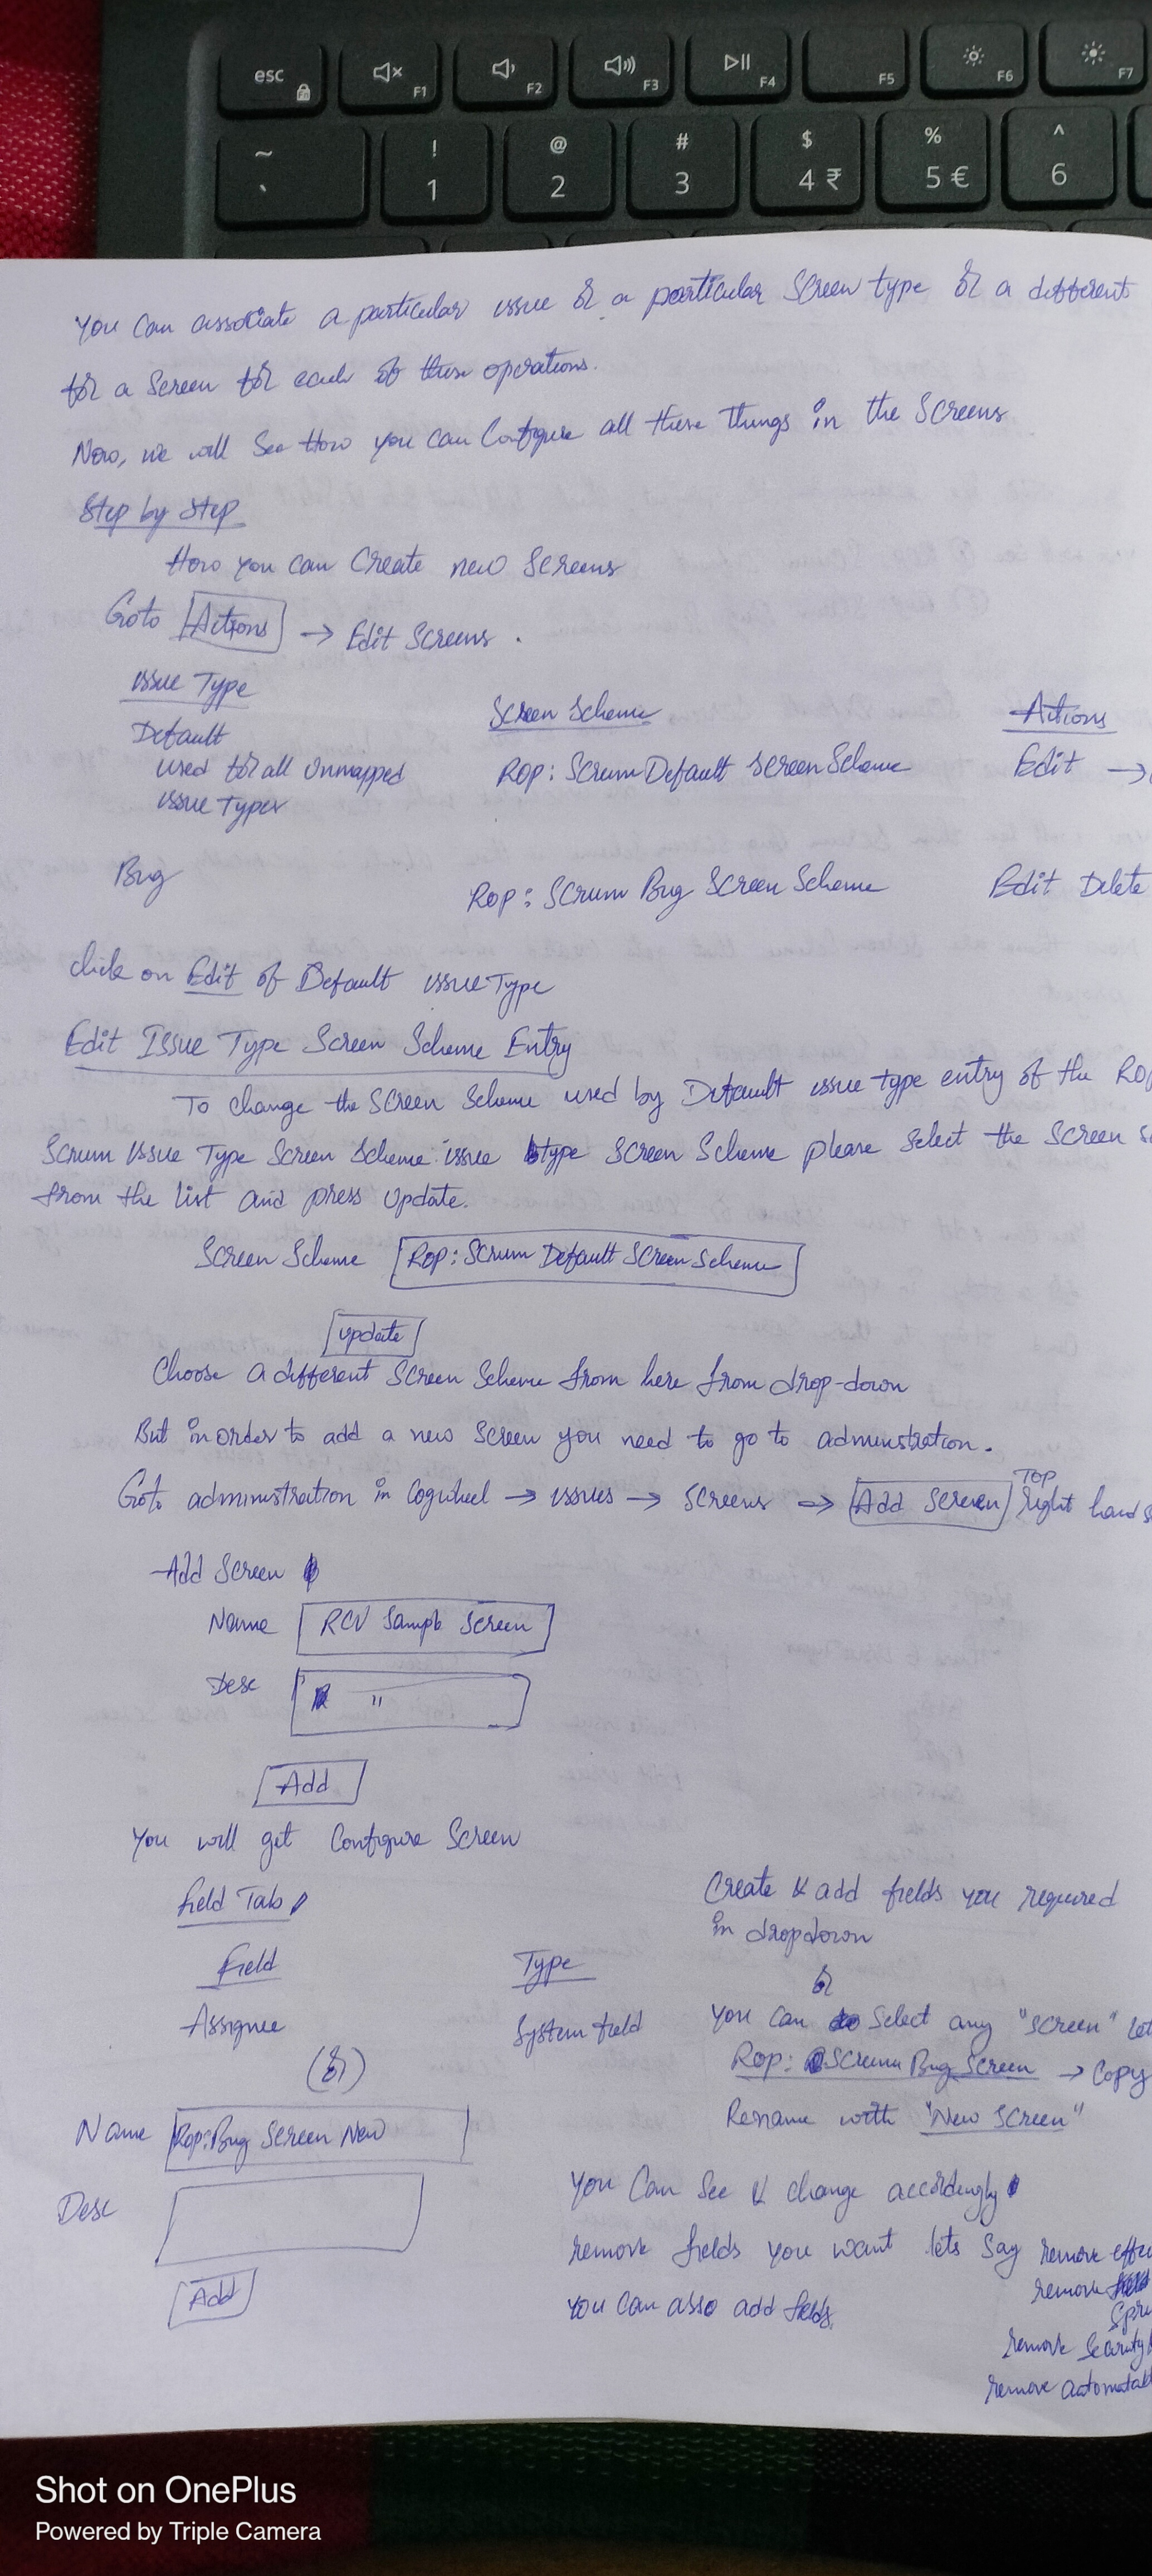 esc F1 F2 F3 F4 F5 F6 F7
~ ` ! 1 @ 2 # 3 $ 4 ₹ % 5 € ^ 6
You can associate a particular issue or a particular Screen type or a different
for a Screen for each of these operations.
Now, we will See How you can Configure all these things in the Screens
Step by Step
How you can Create new Screens
Goto Actions → Edit Screens .
issue Type Screen Scheme Actions
Default
used for all Unmapped Rop: Scrum Default Screen Scheme Edit →
issue Types
Bug Rop: Scrum Bug Screen Scheme Edit Delete
click on Edit of Default issue Type
Edit Issue Type Screen Scheme Entry
To change the Screen Scheme used by Default issue type entry of the Rop
Scrum issue Type Screen Scheme issue type Screen Scheme please select the Screen
from the list and press Update.
Screen Scheme Rop: Scrum Default Screen Scheme
Update
Choose a different Screen Scheme from here from drop-down
But in order to add a new Screen you need to go to adminstration.
Goto administration in Cogwheel → issues → Screens → Add Screen Top right hand
Add Screen
Name RCV Sample Screen
Desc "
Add
You will get Configure Screen
Field Tab Create & add fields you required
in dropdown
Field Type or
Assignee System field You can Select any "Screen" let
(or) Rop: Scrum Bug Screen → Copy
Rename with "New Screen"
Name Rop: Bug Screen New
Desc You Can See & change accordingly
remove fields you want lets Say remove
Add You can also add fields. remove
remove Security
remove
Shot on OnePlus
Powered by Triple Camera